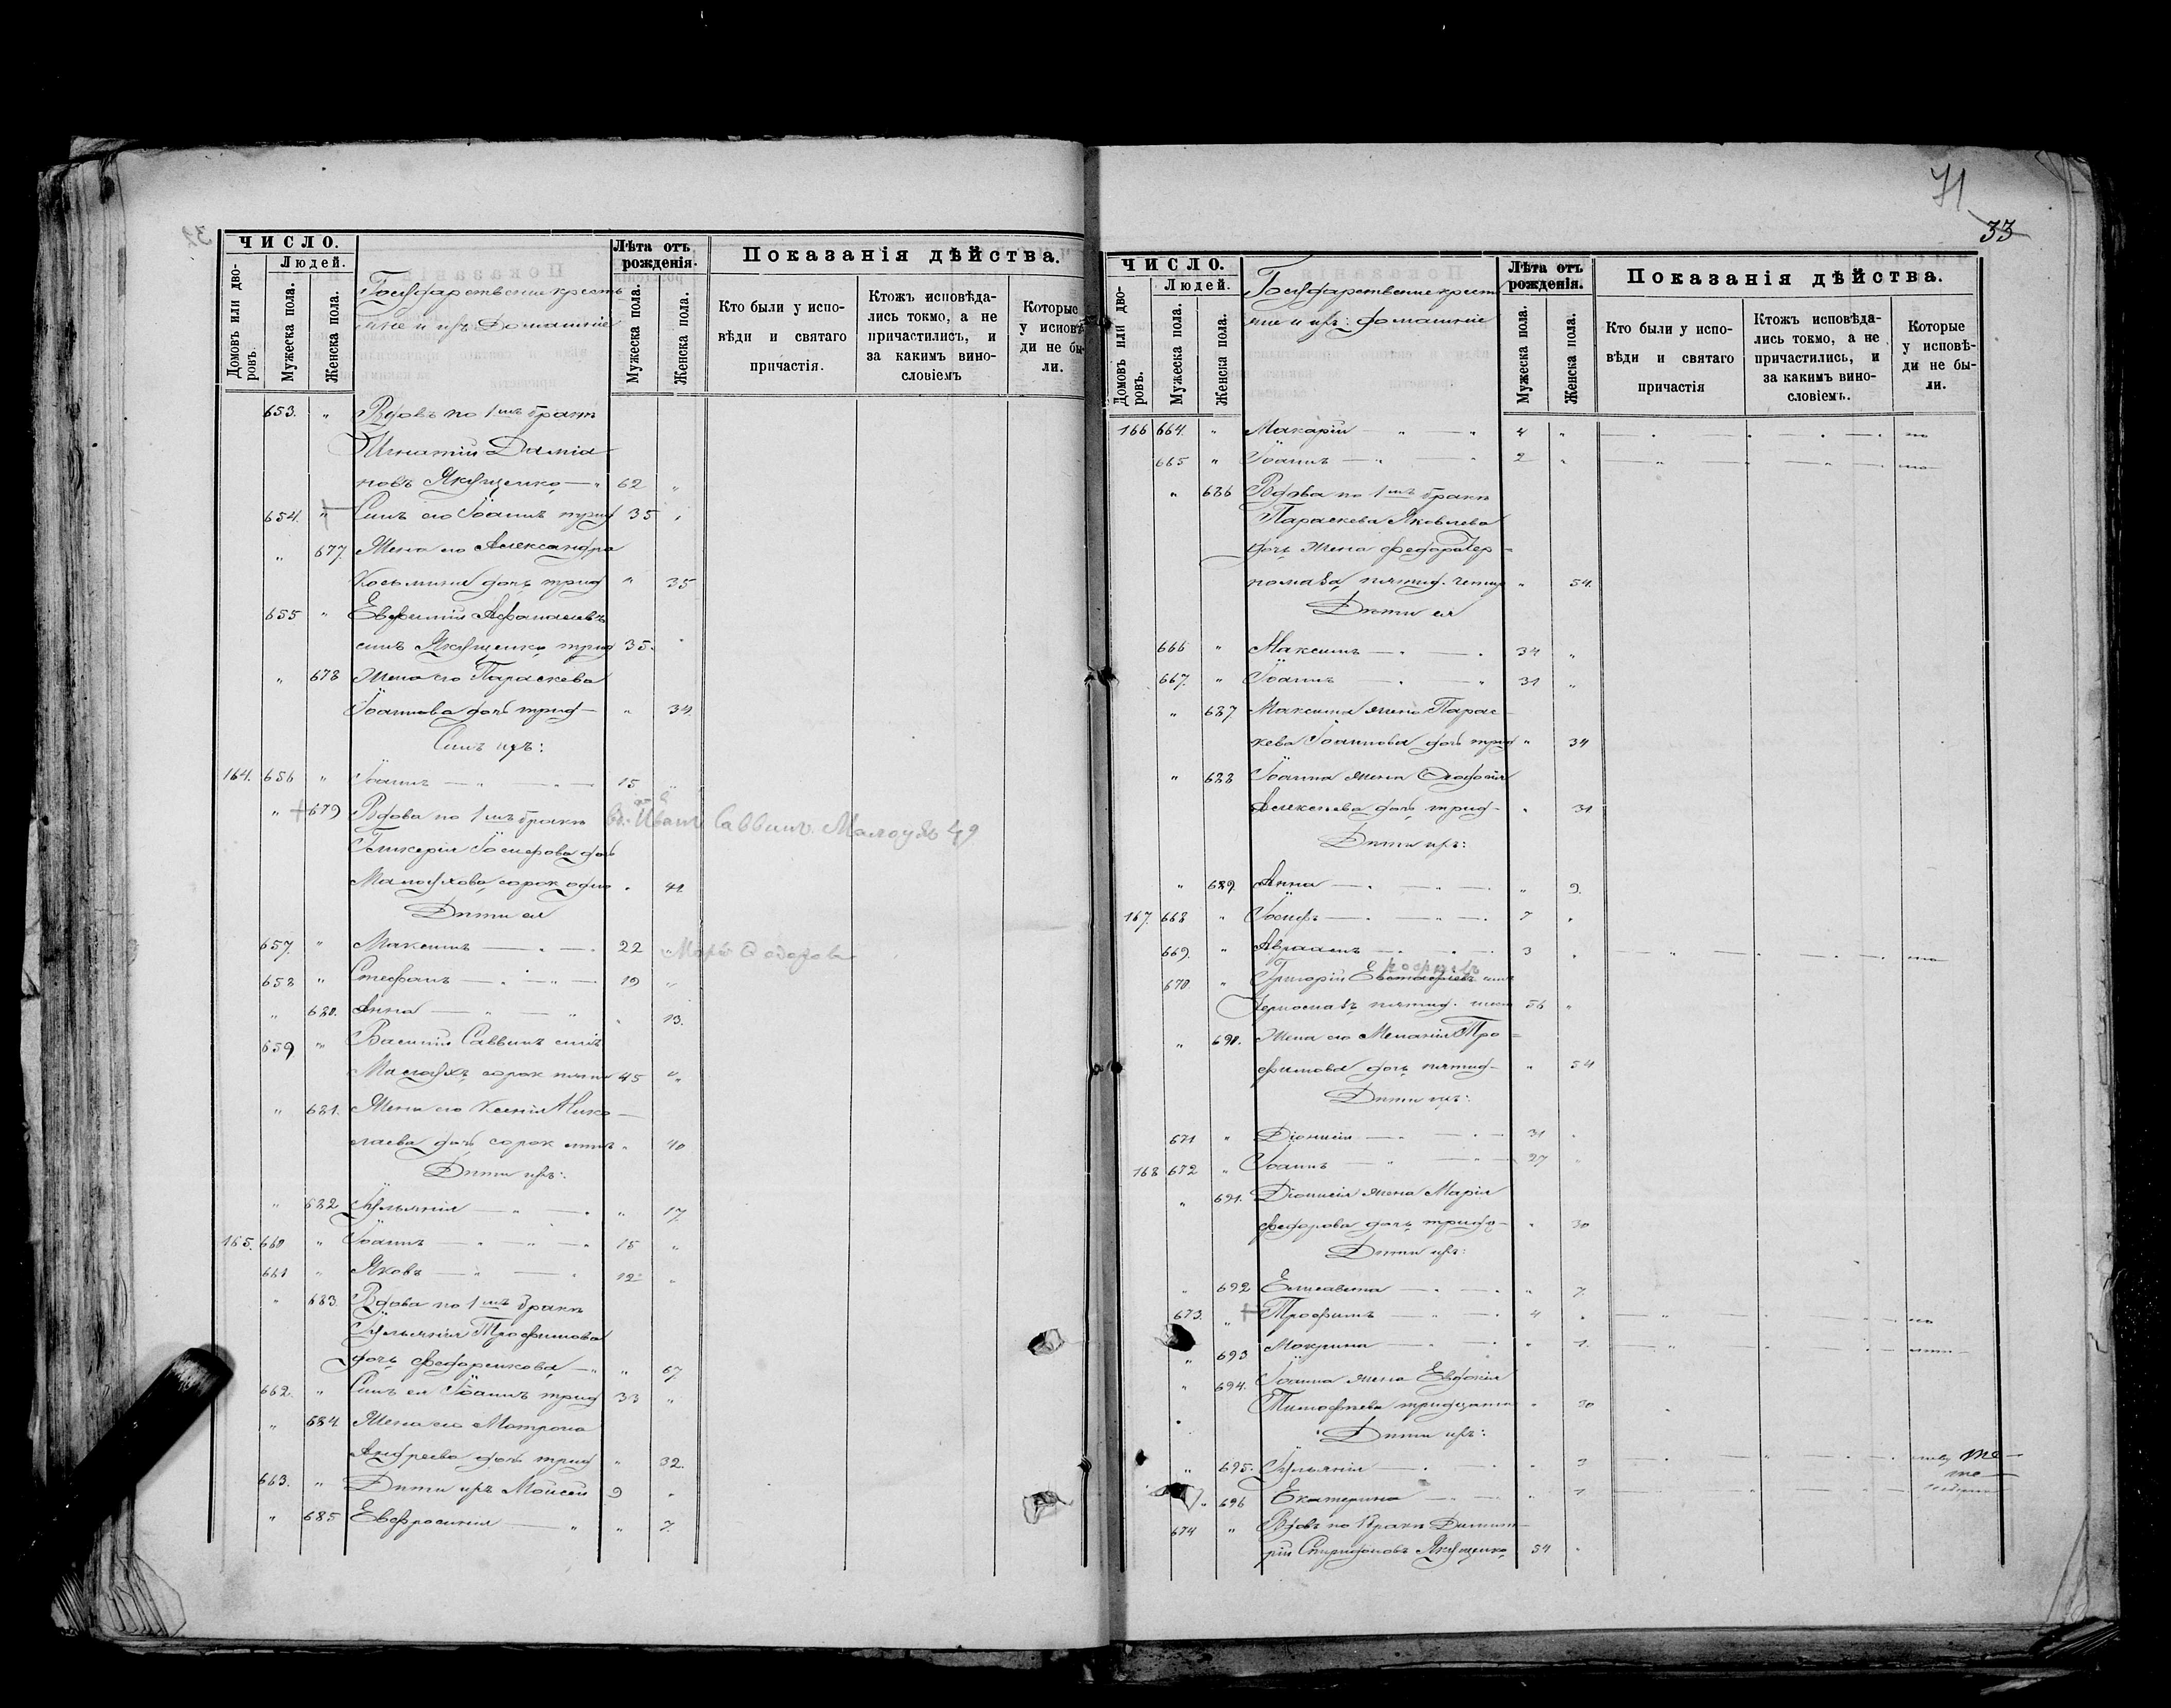 ЧИСЛО.
Людей.
Домовъ или дворовъ.
Мужеска пола.
Женска пола.
Государственн крестьяне и ихъ домашніе
Лѣта отъ рожденія.
Мужеска пола.
Женска пола.
Показанія дѣйства.
Кто были у исповѣди и святаго причастія.
Ктожъ исповѣдались токмо, а не причастились, и за какимъ винословіемъ
Которые у исповѣди не были.
653. " Вдовъ по 1мъ бракѣ
Игнатій Даміановъ Якущенко — " 62 "
654. " Сынъ его Іоаннъ трид 35 "
" 677. Жена его Александра
Косьмина дочь трид " 35
655 " Евфимій Афанасьевъ
сынъ Якущенко трид 35. "
" 678 Жена его Параскева
Іоаннова дочь трид — " 34.
Сынъ ихъ:
164. 656 " Іоаннъ — " — " — 15 "
" + 679 Вдова по 1мъ бракѣ
вд. Иванъ Саввинъ Малоухъ 49
Гликерія Іосифова дочь
Малоухова сорок один " 41
Дѣти ея
657. " Максимъ — " — 22 Марія Федорова
658 " Стефанъ — " — " — 19 "
" 680. Анна — " — " " 13.
659 " Василій Саввинъ сынъ
Малоухъ сорок пять 45 "
" 681. Жена его Ксенія Нико-
лаева дочь сорок " 40
Дѣти ихъ:
" 682 Іульянія — " — " " 17.
165. 660 " Іоаннъ — " " — 15 "
661 " Яковъ — " — " 12 "
" 683. Вдова по 1мъ бракѣ
Іульянія Трофимова
дочь Федоренкова — " " 67.
662. " Сынъ ея Іоаннъ трид 33 "
" 684 Жена его Матрона
Андреева дочь трид " 32.
663. " Дѣти ихъ Моисей 9 "
" 685 Евфросинія — " " 7.
71
33
ЧИСЛО.
Людей.
Домовъ или дворовъ.
Мужеска пола.
Женска пола.
Государственн крестьяне и ихъ: домашніе
Лѣта отъ рожденія.
Мужеска пола.
Женска пола.
Показанія дѣйства.
Кто были у исповѣди и святаго причастія
Ктожъ исповѣдались токмо, а не причастились, и за какимъ винословіемъ.
Которые у исповѣди не были.
166 664. " Макарій — " — " 4 "
665 " Іоаннъ — " — " 2 "
" 686 Вдова по 1мъ бракѣ
Параскева Яковлева
дочь жена Федора Чер-
номаза, пятид. четыр " 54.
Дѣти ея
666 " Максимъ — " — " 34 "
667. " Іоаннъ — " — " 31 "
" 687 Максима жена Парас-
кева Іоаннова дочь трид " 34
" 688 Іоанна жена Феодосія
Алексѣева дочь трид — " 31
Дѣти ихъ:
" 689. Анна — " — " — " 9.
167. 668 " Іосифъ — " — " — 7 "
669. " Авраамъ — " — " — 3 "
670. " Григорій Евстафіевъ сынъ
Черномазъ пятид. шес 56 "
" 690. Жена его Меланія Тро-
фимова дочь пятид — " 54
Дѣти ихъ:
671 " Діонисій — " — " — 31 "
168 672 " Іоаннъ — " — " — 27 "
" 691. Діонисія жена Марія
Федорова дочь тридц — " 30
Дѣти ихъ:
" 692 Елисавета — " — " " 7.
673. " + Трофимъ — " — " 4 "
" 693 Макрина — " — " " 1.
" 694. Іоанна жена Евдокія
Тимофѣева тридцать " 30
Дѣти ихъ:
" 695. Іульянія — " — " " 3
" 696 Екатерина — " — " " 1.
674 " Вдовъ по 1 бракѣ Димит-
рій Спиридоновъ Якущенко 54 "